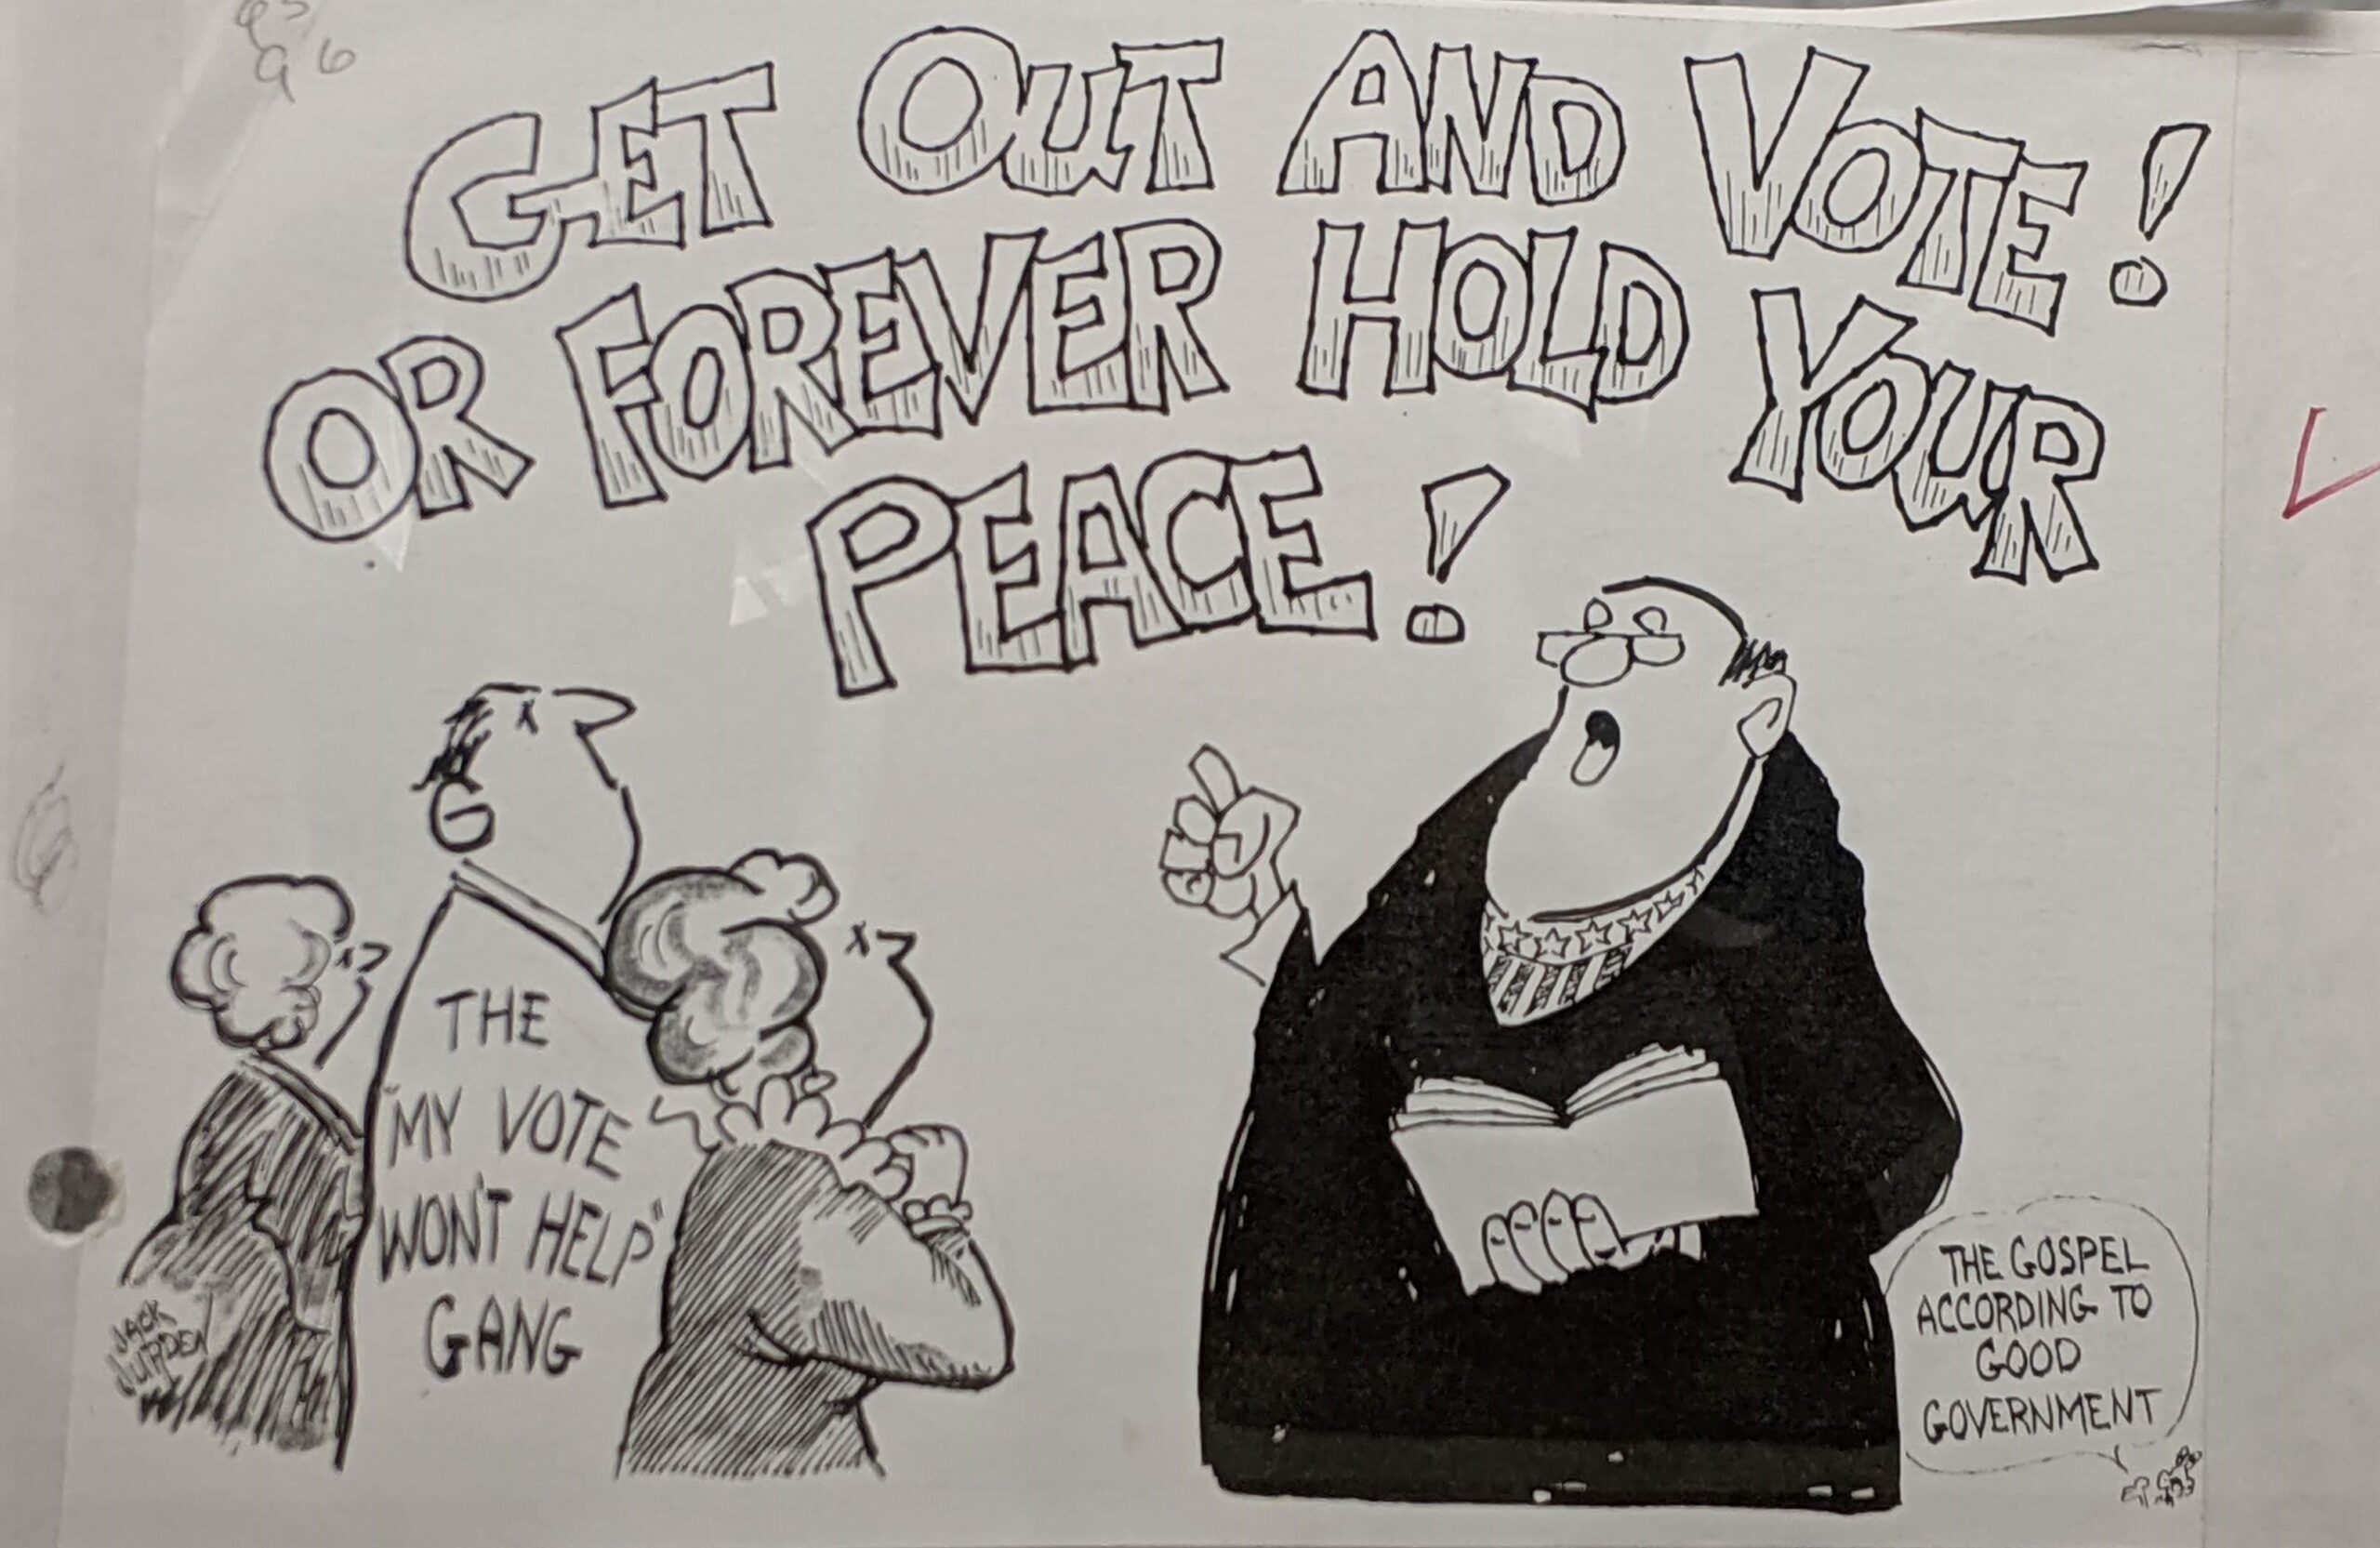 96
GET OUT AND VOTE!
OR FOREVER HOLD YOUR
PEACE!
THE
"MY VOTE
WON'T HELP"
GANG
JACK
JURDEN
THE GOSPEL
ACCORDING TO
GOOD
GOVERNMENT